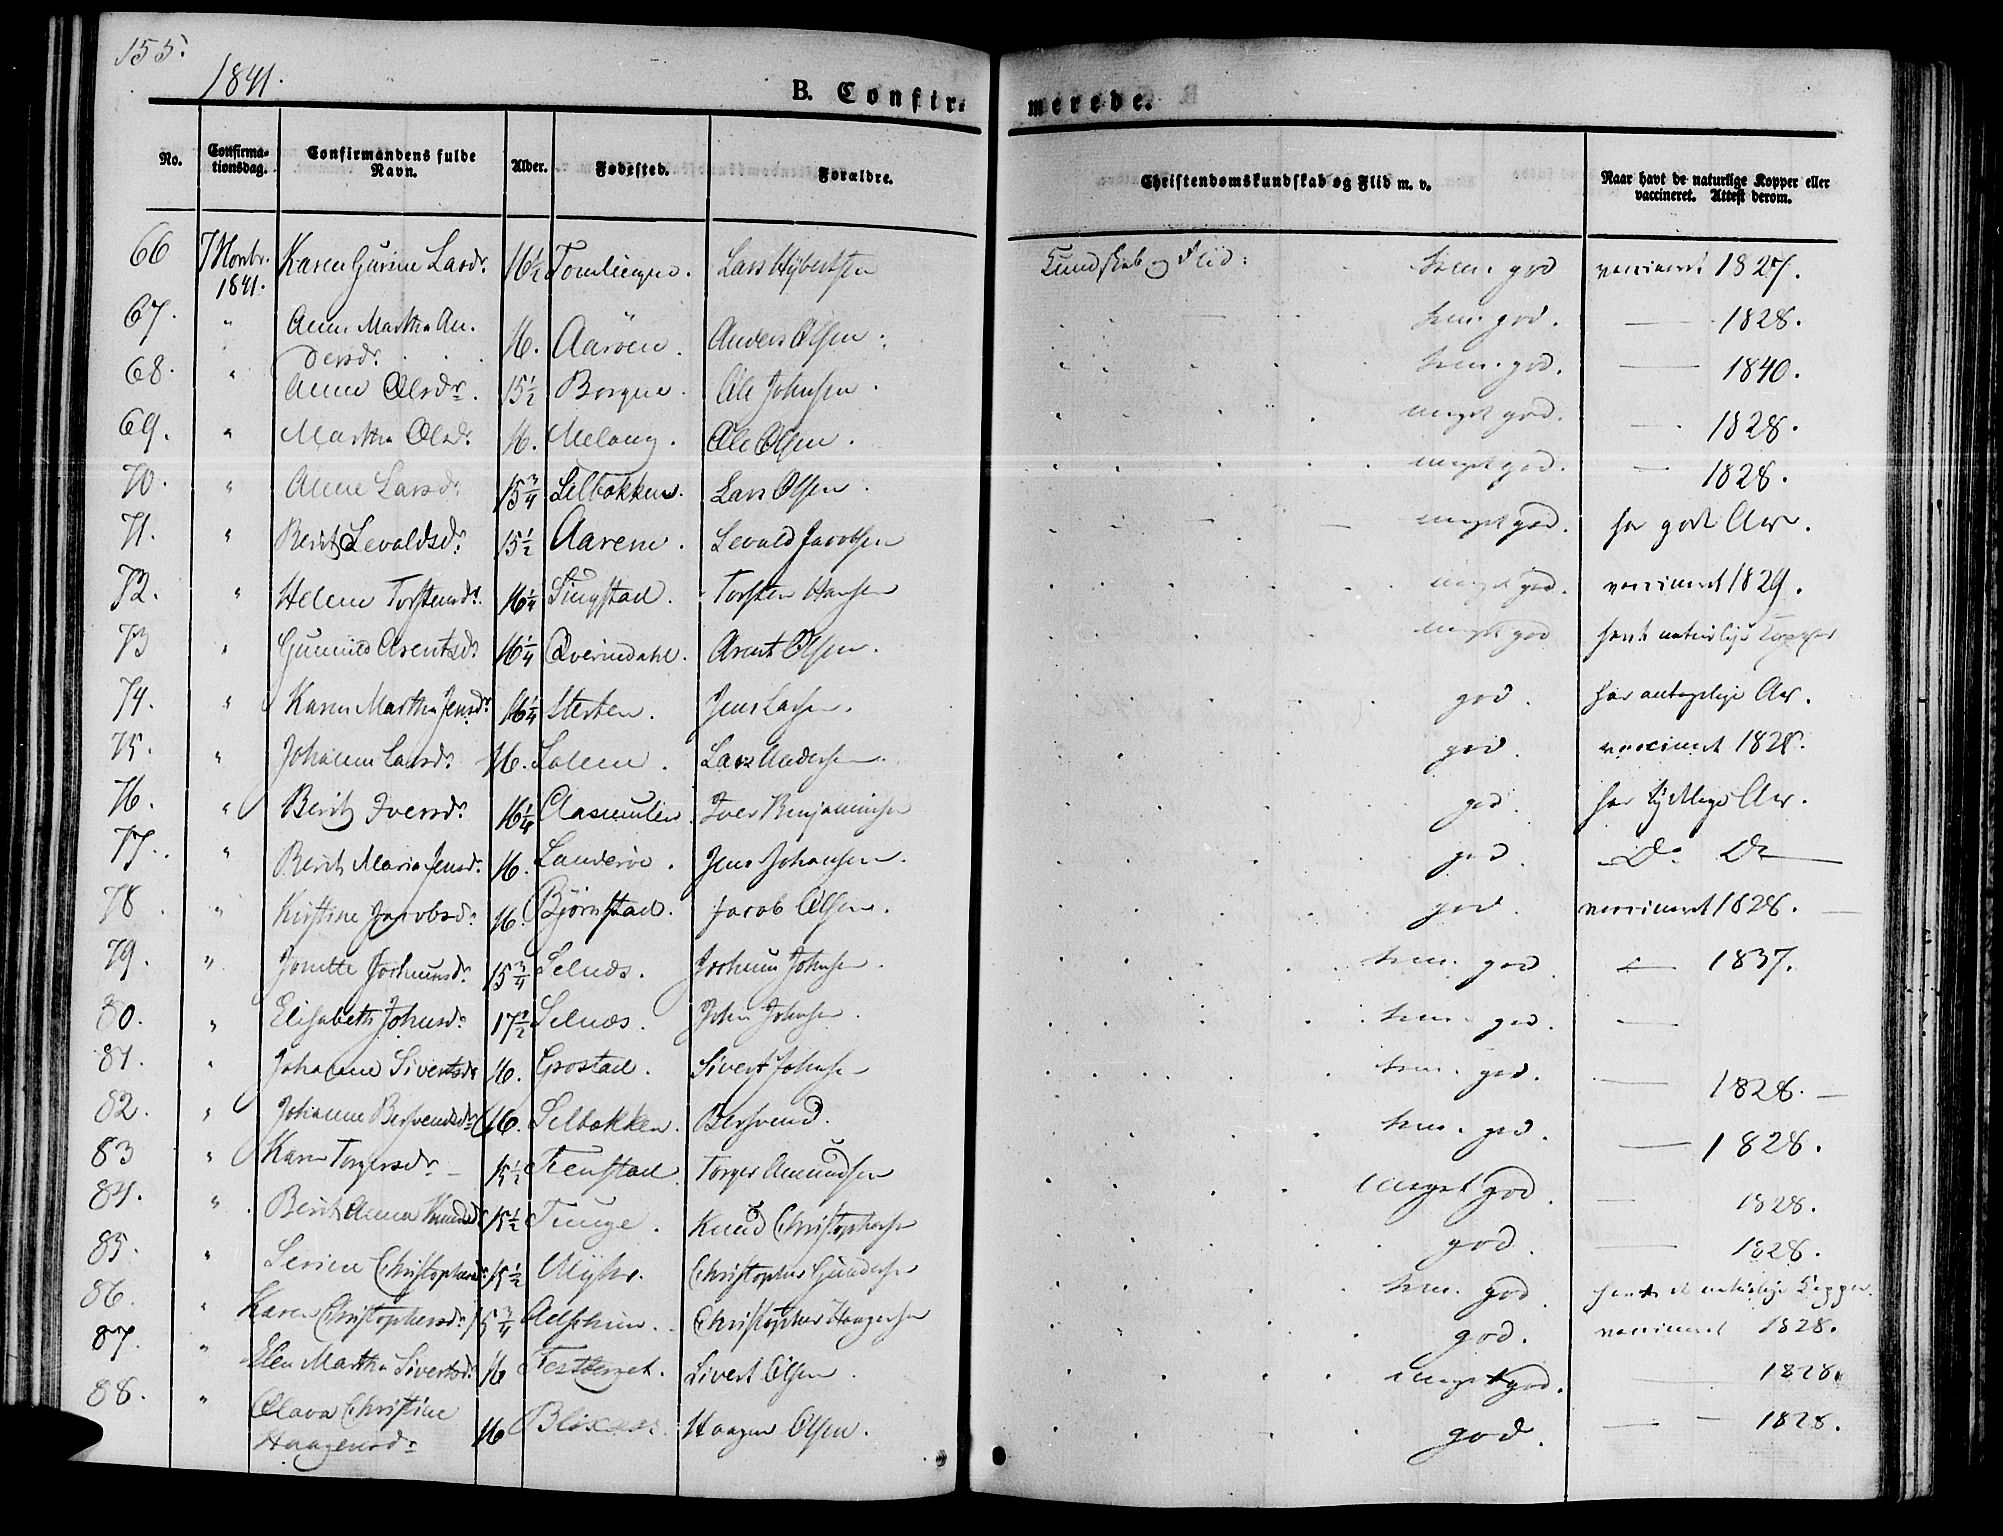 155.
1841.
B. Confir-
merede.
No. Confirma-tionsdag. Confirmandens fulde Navn. Alder. Fødested. Forældre. Christendomskundskab og Flid m. v. Naar havt de naturlige Kopper eller vaccineret. Attest derom.
66 7 Novbr. 1841. Karen Gurine Larsdr. 16½ Lars Kundskab og Flid: god vaccineret 1827.
67. " Anne Martha Andersdr. 16. Aarøen. Anders Olsen. god. — 1828.
68. " Anne Olsdr. 15½ Borgen. Ole Johnsen. god. — 1840.
69. " Martha Olsdr. 16. Melang. Ole Olsen. meget god. — 1828.
70. " Anne Larsdr. 15¾ Selbakken. Lars Olsen. meget god. — 1828.
71. " Berit Sevaldsdr. 15½ Aarem. Sevald Jacobsen meget god. har gode Ar.
72. " Helene Torstensdr. 16¼ Singstad. Torsten Hansen meget god. vaccineret 1829.
73 " Gunnild Arentsdr. 16¼ Qvernedahl. Arent Olsen. meget god havt naturlige Kopper
74. " Karen Martha Jensdr. 16¼ Sterten. Jens Larsen. god. har antagelige Ar.
75. " Johanne Larsdr. 16. Solem. Lars Andersen. god. vaccineret 1828.
76. " Berit Iversdr. 16¼ Iver Benjaminsen god. har tydelige Ar.
77. " Berit Maria Jensdr. 16. Sanderøe. Jens Johansen. god. Do Do
78 " Kirstine Jacobsdr. 16. Bjørnstad. Jacob Olsen. god. vaccineret 1828.
79. " Jonette Jochumsdr. 15¾ Selnæs. Jochum Johnsen. god — 1837.
80. " Elisabeth Johnsdr. 17½ Selnæs. John Johnsen. god. —
81. " Johanne Sivertsdr. 16. Grostad. Sivert Johnsen god. — 1828.
82. " Johanne Bersvendsdr. 16. Selbakken. Bersvend. god. — 1828.
83 " Karen Torgersdr. 15½ Fenstad. Torger Amundsen meget god. — 1828.
84. " Berit Anna Knudsdr. 15½ Tunge. Knud Christophersen god. — 1828.
85. " Serine Christophersdr. 15½ Myhr. Christopher Gundersen god havt de naturlige Kopper.
86. " Karen Christophersdr. 15¾ Christopher Haagensen god. vaccineret 1828.
87. " Elen Martha Sivertsdr. 16 Sivert Olsen. meget god. — 1828.
88. " Olava Christine Haagensdr. 16 Haagen Olsen. god. — 1828.